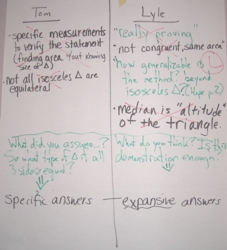 Tom
• specific measurements
to verify the statement
(finding area without knowing
size of Δ)
• not all isosceles Δ are
equilateral
What did you assume...?
So what type of Δ if all
3 sides equal?
Specific answers
Lyle
• "really proving"
• "not congruent, same area"
How generalizable is
the method? beyond
isosceles Δ?
• median is "altitude"
of the triangle.
What do you think? Is this
demonstration enough?
expansive answers